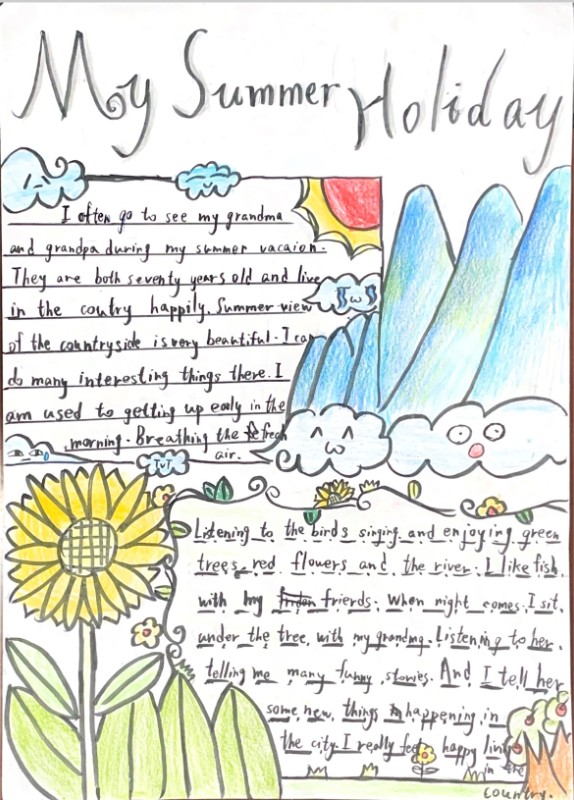 My Summer Holiday
I often go to see my grandma
and grandpa during my summer vacaion.
They are both seventy years old and live
in the coutry happily. Summer view
of the countryside is very beautiful. I can
do many interesting things there. I
am used to getting up ealy in the
morning. Breathing the fresh
air.
Listening to the birds singing and enjoying green
trees, red flowers and the river. I like fish
with my friends. When night comes. I sit
under the tree with my grandma. Listening to her
telling me many funny stories. And I tell her
some new things happening in
the city. I really feel happy
in the
country.